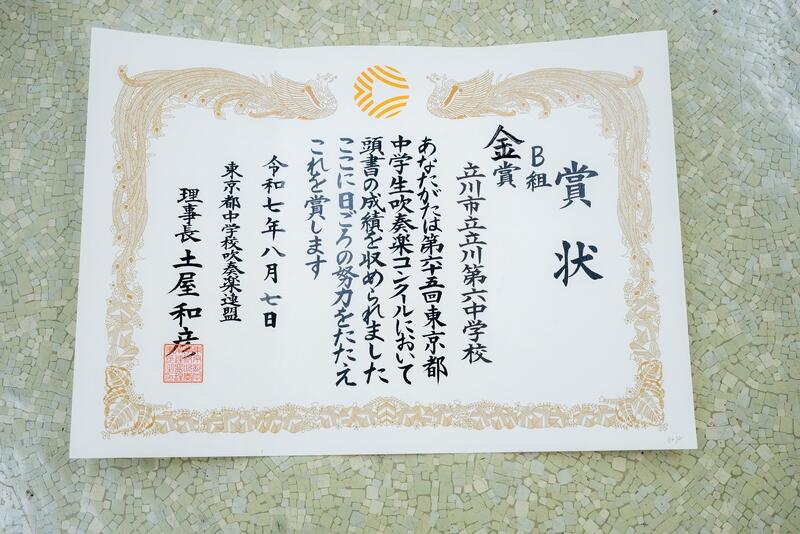 賞状
B組
金賞
立川市立立川第六中学校
あなたがたは第六十五回東京都
中学生吹奏楽コンクールにおいて
頭書の成績を収められました
ここに日ごろの努力をたたえ
これを賞します
令和七年八月七日
東京都中学校吹奏楽連盟
理事長 土屋和彦